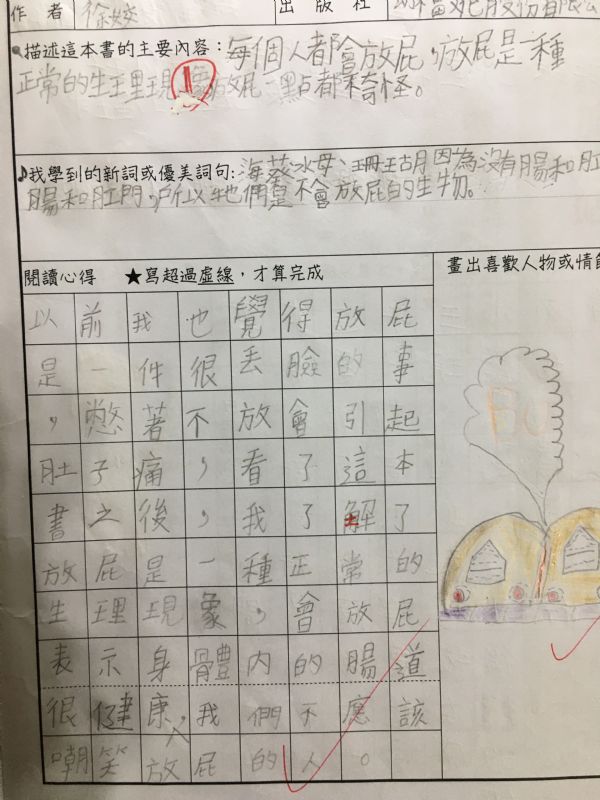 作者 徐姣 出版社
描述這本書的主要內容：每個人都會放屁，放屁是一種
正常的生理現象放屁一點都不奇怪。
我學到的新詞或優美詞句：海葵水母、珊瑚因為沒有腸和肛
腸和肛門，所以牠們是不會放屁的生物。
閱讀心得 ★寫超過虛線，才算完成
畫出喜歡人物或情節
以前我也覺得放屁
是一件很丟臉的事
，憋著不放會引起
肚子痛，看了這本
書之後，我了解了
放屁是一種正常的
生理現象，會放屁
表示身體內的腸道
很健康，我們不應該
嘲笑放屁的人。
BU